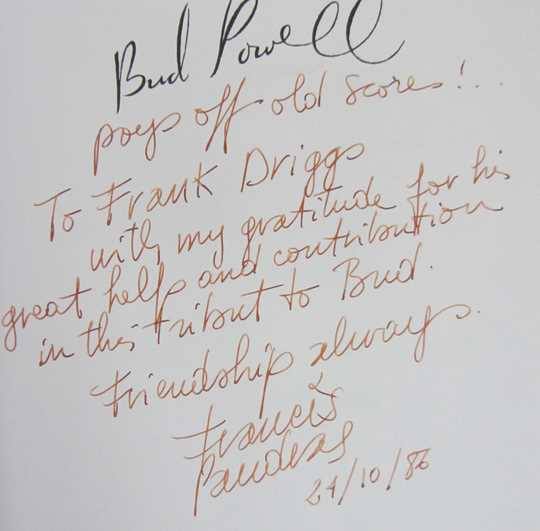 Bud Powell
pays off old scores!...
To Frank Driggs
with my gratitude for his
great help and contribution
in this tribut to Bud.
Friendship always.
Francis
Paudras
24/10/86